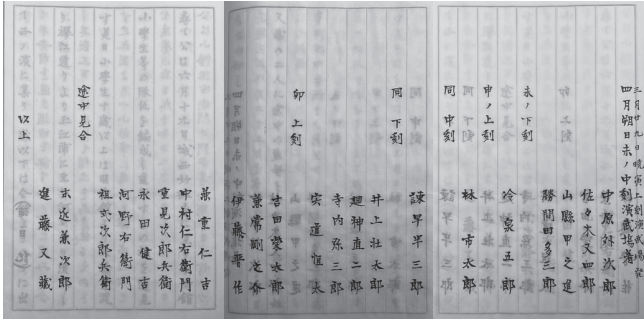 三月廿九日晩寅ノ上刻演武場着
四月朔日未ノ中刻演武場着
中原弥次郎
佐々木又四郎
山縣甲之進
勝間田多三郎
未ノ下刻
冷泉五郎
申ノ上刻
林市太郎
同中刻
諫早半三郎
同下刻
井上壮太郎
廻神直二郎
寺内弥三郎
宍道恒太
卯上刻
吉田榮太郎
兼常剛之介
伊藤晋作
兼重仁吉
中村仁右衛門
重見次郎兵衛
永田健吉
河野右衛門
祖式次郎兵衛
途中見合
末近兼次郎
進藤又蔵
以上